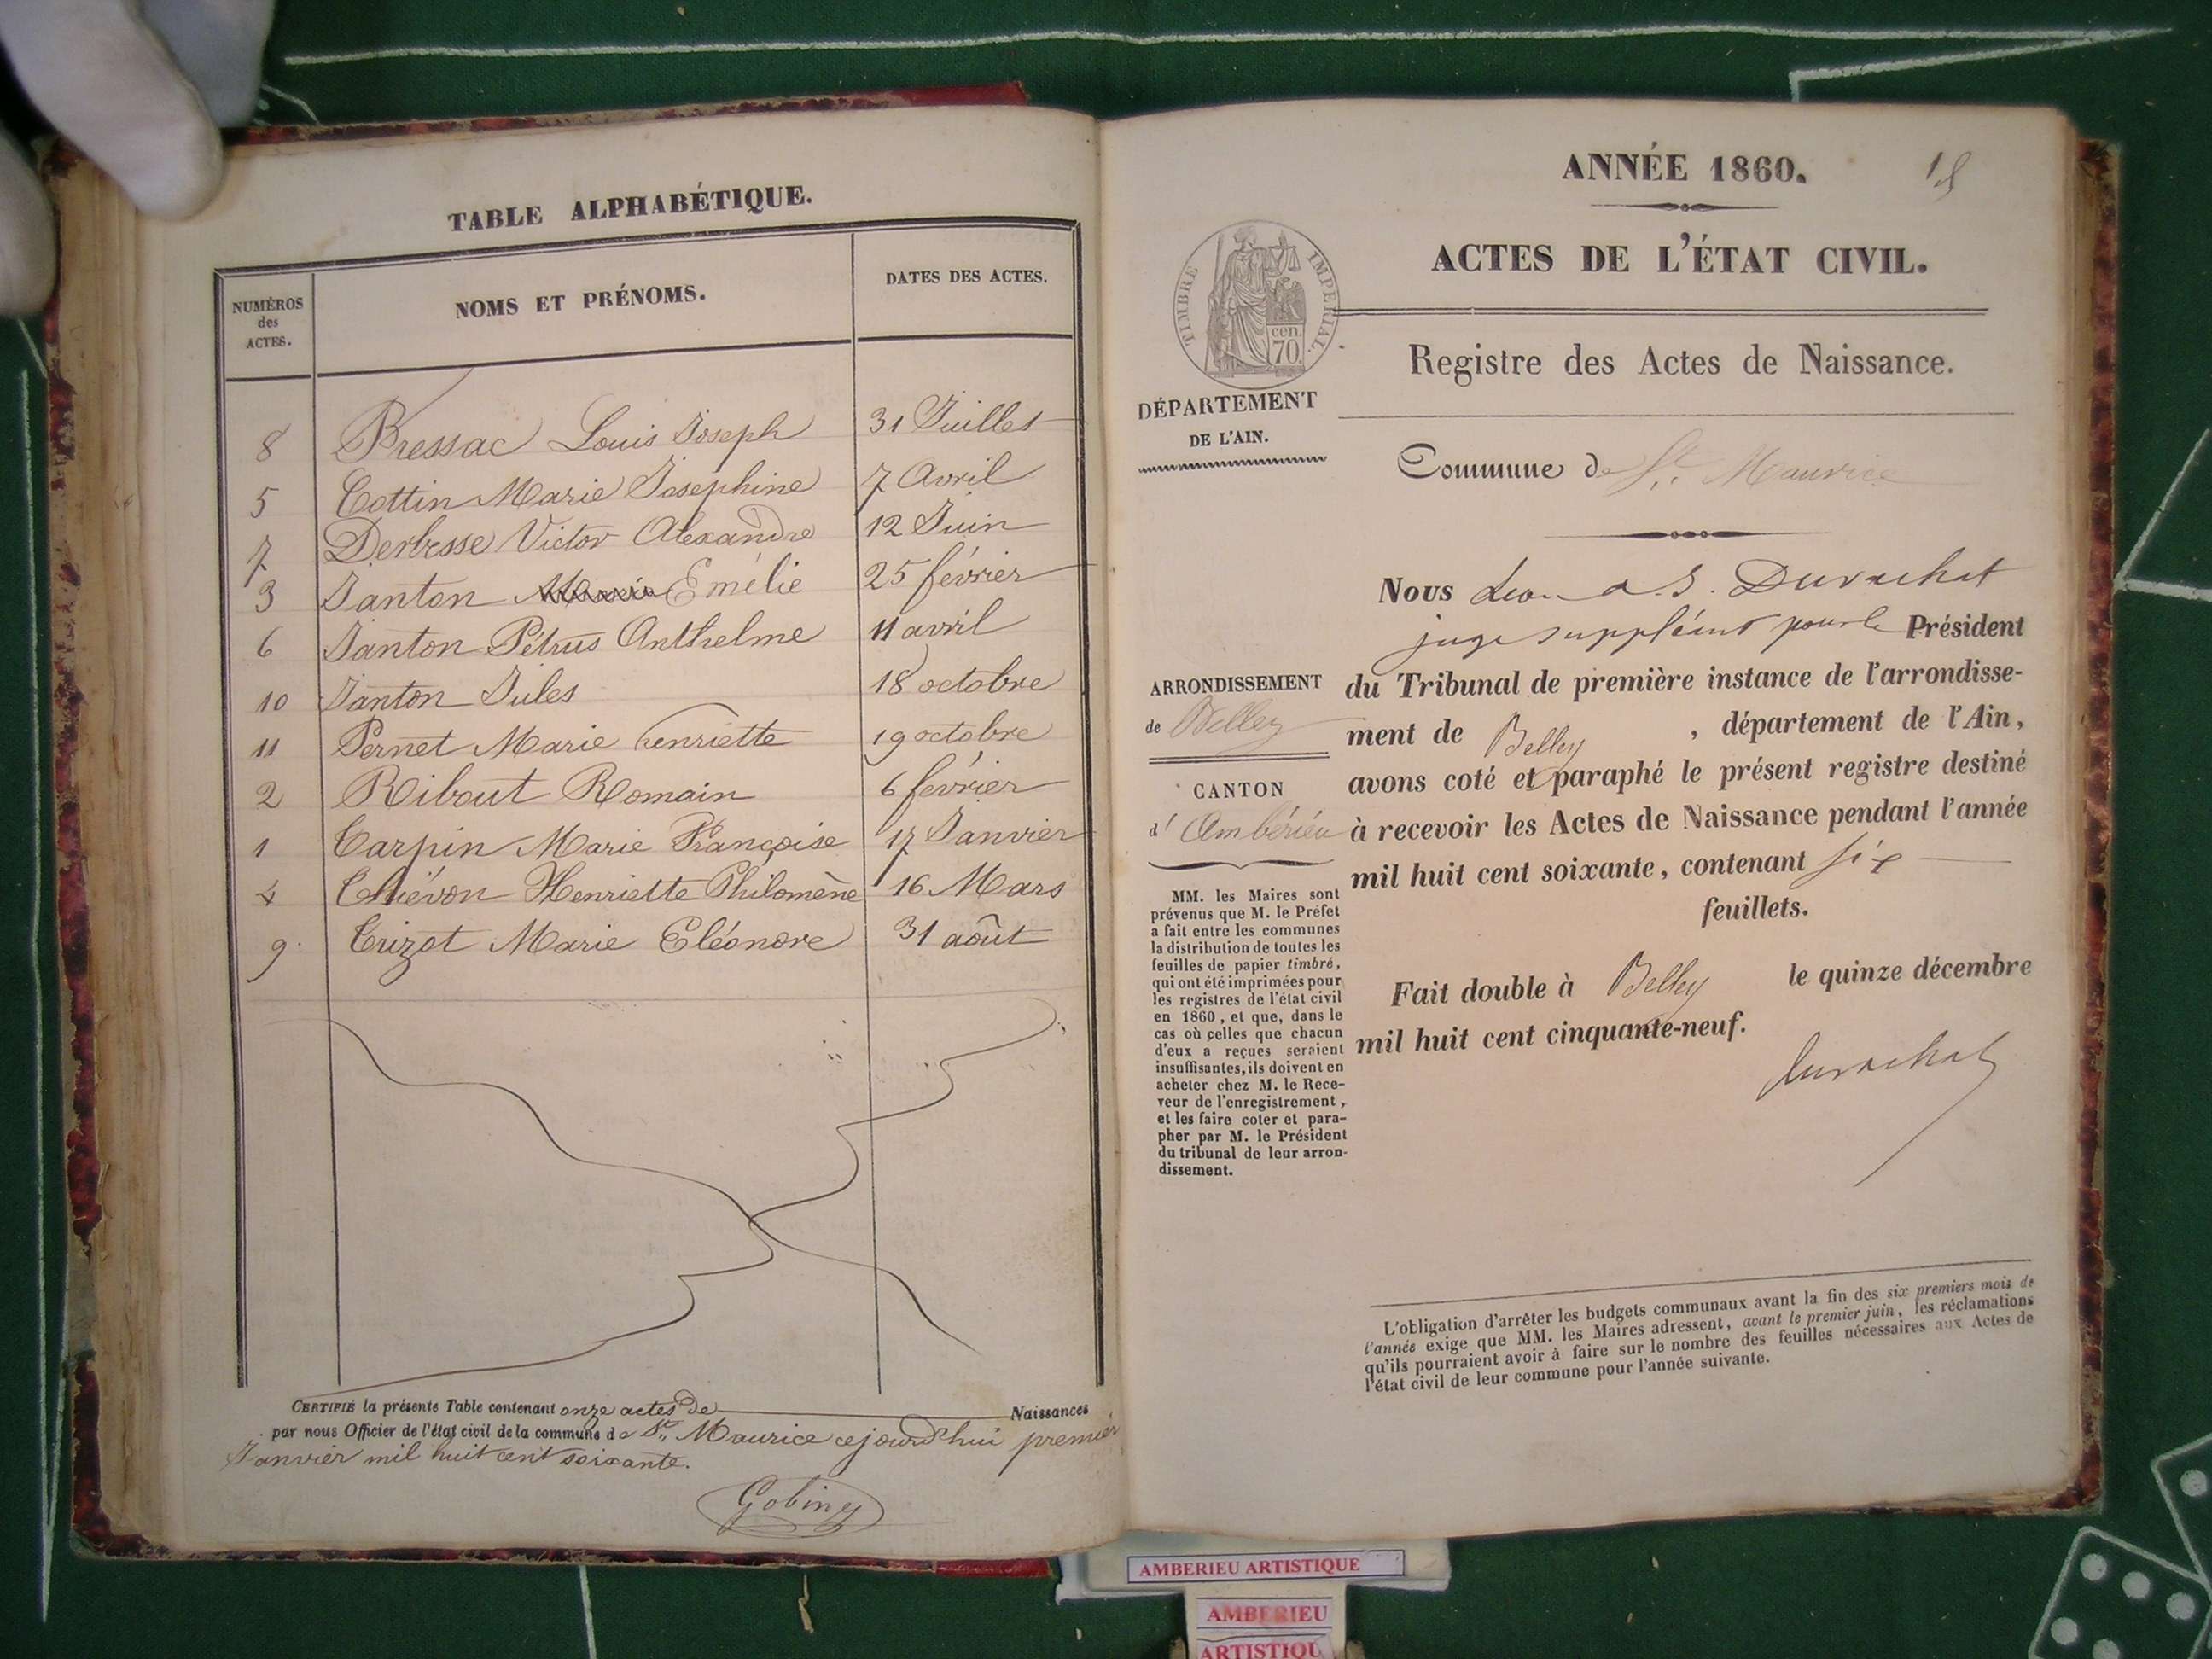 TABLE ALPHABÉTIQUE.
NUMÉROS
des
ACTES.
NOMS ET PRÉNOMS.
DATES DES ACTES.
8 Bressac Louis Joseph 31 Juillet
5 Cottin Marie Josephine 7 Avril
7 Derbesse Victor Alexandre 12 Juin
3 Janton Marie Emélie 25 février
6 Janton Pétrus Anthelme 11 avril
10 Janton Jules 18 octobre
11 Pernet Marie henriette 19 octobre
2 Ribout Romain 6 février
1 Tarpin Marie Françoise 17 Janvier
4 Thiévon Henriette Philomène 16 Mars
9. Trizot Marie Eléonore 31 août
CERTIFIÉ la présente Table contenant onze actes de Naissances
par nous Officier de l'état civil de la commune de St. Maurice cejourd'hui premier
Janvier mil huit cent soixante.
Gobiny
ANNÉE 1860.
ACTES DE L'ÉTAT CIVIL.
TIMBRE IMPERIAL.
cen.
70.
Registre des Actes de Naissance.
DÉPARTEMENT
DE L'AIN.
Commune de St. Maurice
Nous Durachat
juge suppléant pour le Président
du Tribunal de première instance de l'arrondisse-
ment de Belley, département de l'Ain,
avons coté et paraphé le présent registre destiné
à recevoir les Actes de Naissance pendant l'année
mil huit cent soixante, contenant six
feuillets.
Fait double à Belley le quinze décembre
mil huit cent cinquante-neuf.
Durachat
ARRONDISSEMENT
de Belley
CANTON
d' Ambérieu
MM. les Maires sont
prévenus que M. le Préfet
a fait entre les communes
la distribution de toutes les
feuilles de papier timbré,
qui ont été imprimées pour
les registres de l'état civil
en 1860, et que, dans le
cas où celles que chacun
d'eux a reçues seraient
insuffisantes, ils doivent en
acheter chez M. le Rece-
veur de l'enregistrement,
et les faire coter et para-
pher par M. le Président
du tribunal de leur arron-
dissement.
L'obligation d'arrêter les budgets communaux avant la fin des six premiers mois de
l'année exige que MM. les Maires adressent, avant le premier juin, les réclamations
qu'ils pourraient avoir à faire sur le nombre des feuilles nécessaires aux Actes de
l'état civil de leur commune pour l'année suivante.
AMBERIEU ARTISTIQUE
AMBERIEU
ARTISTIQU